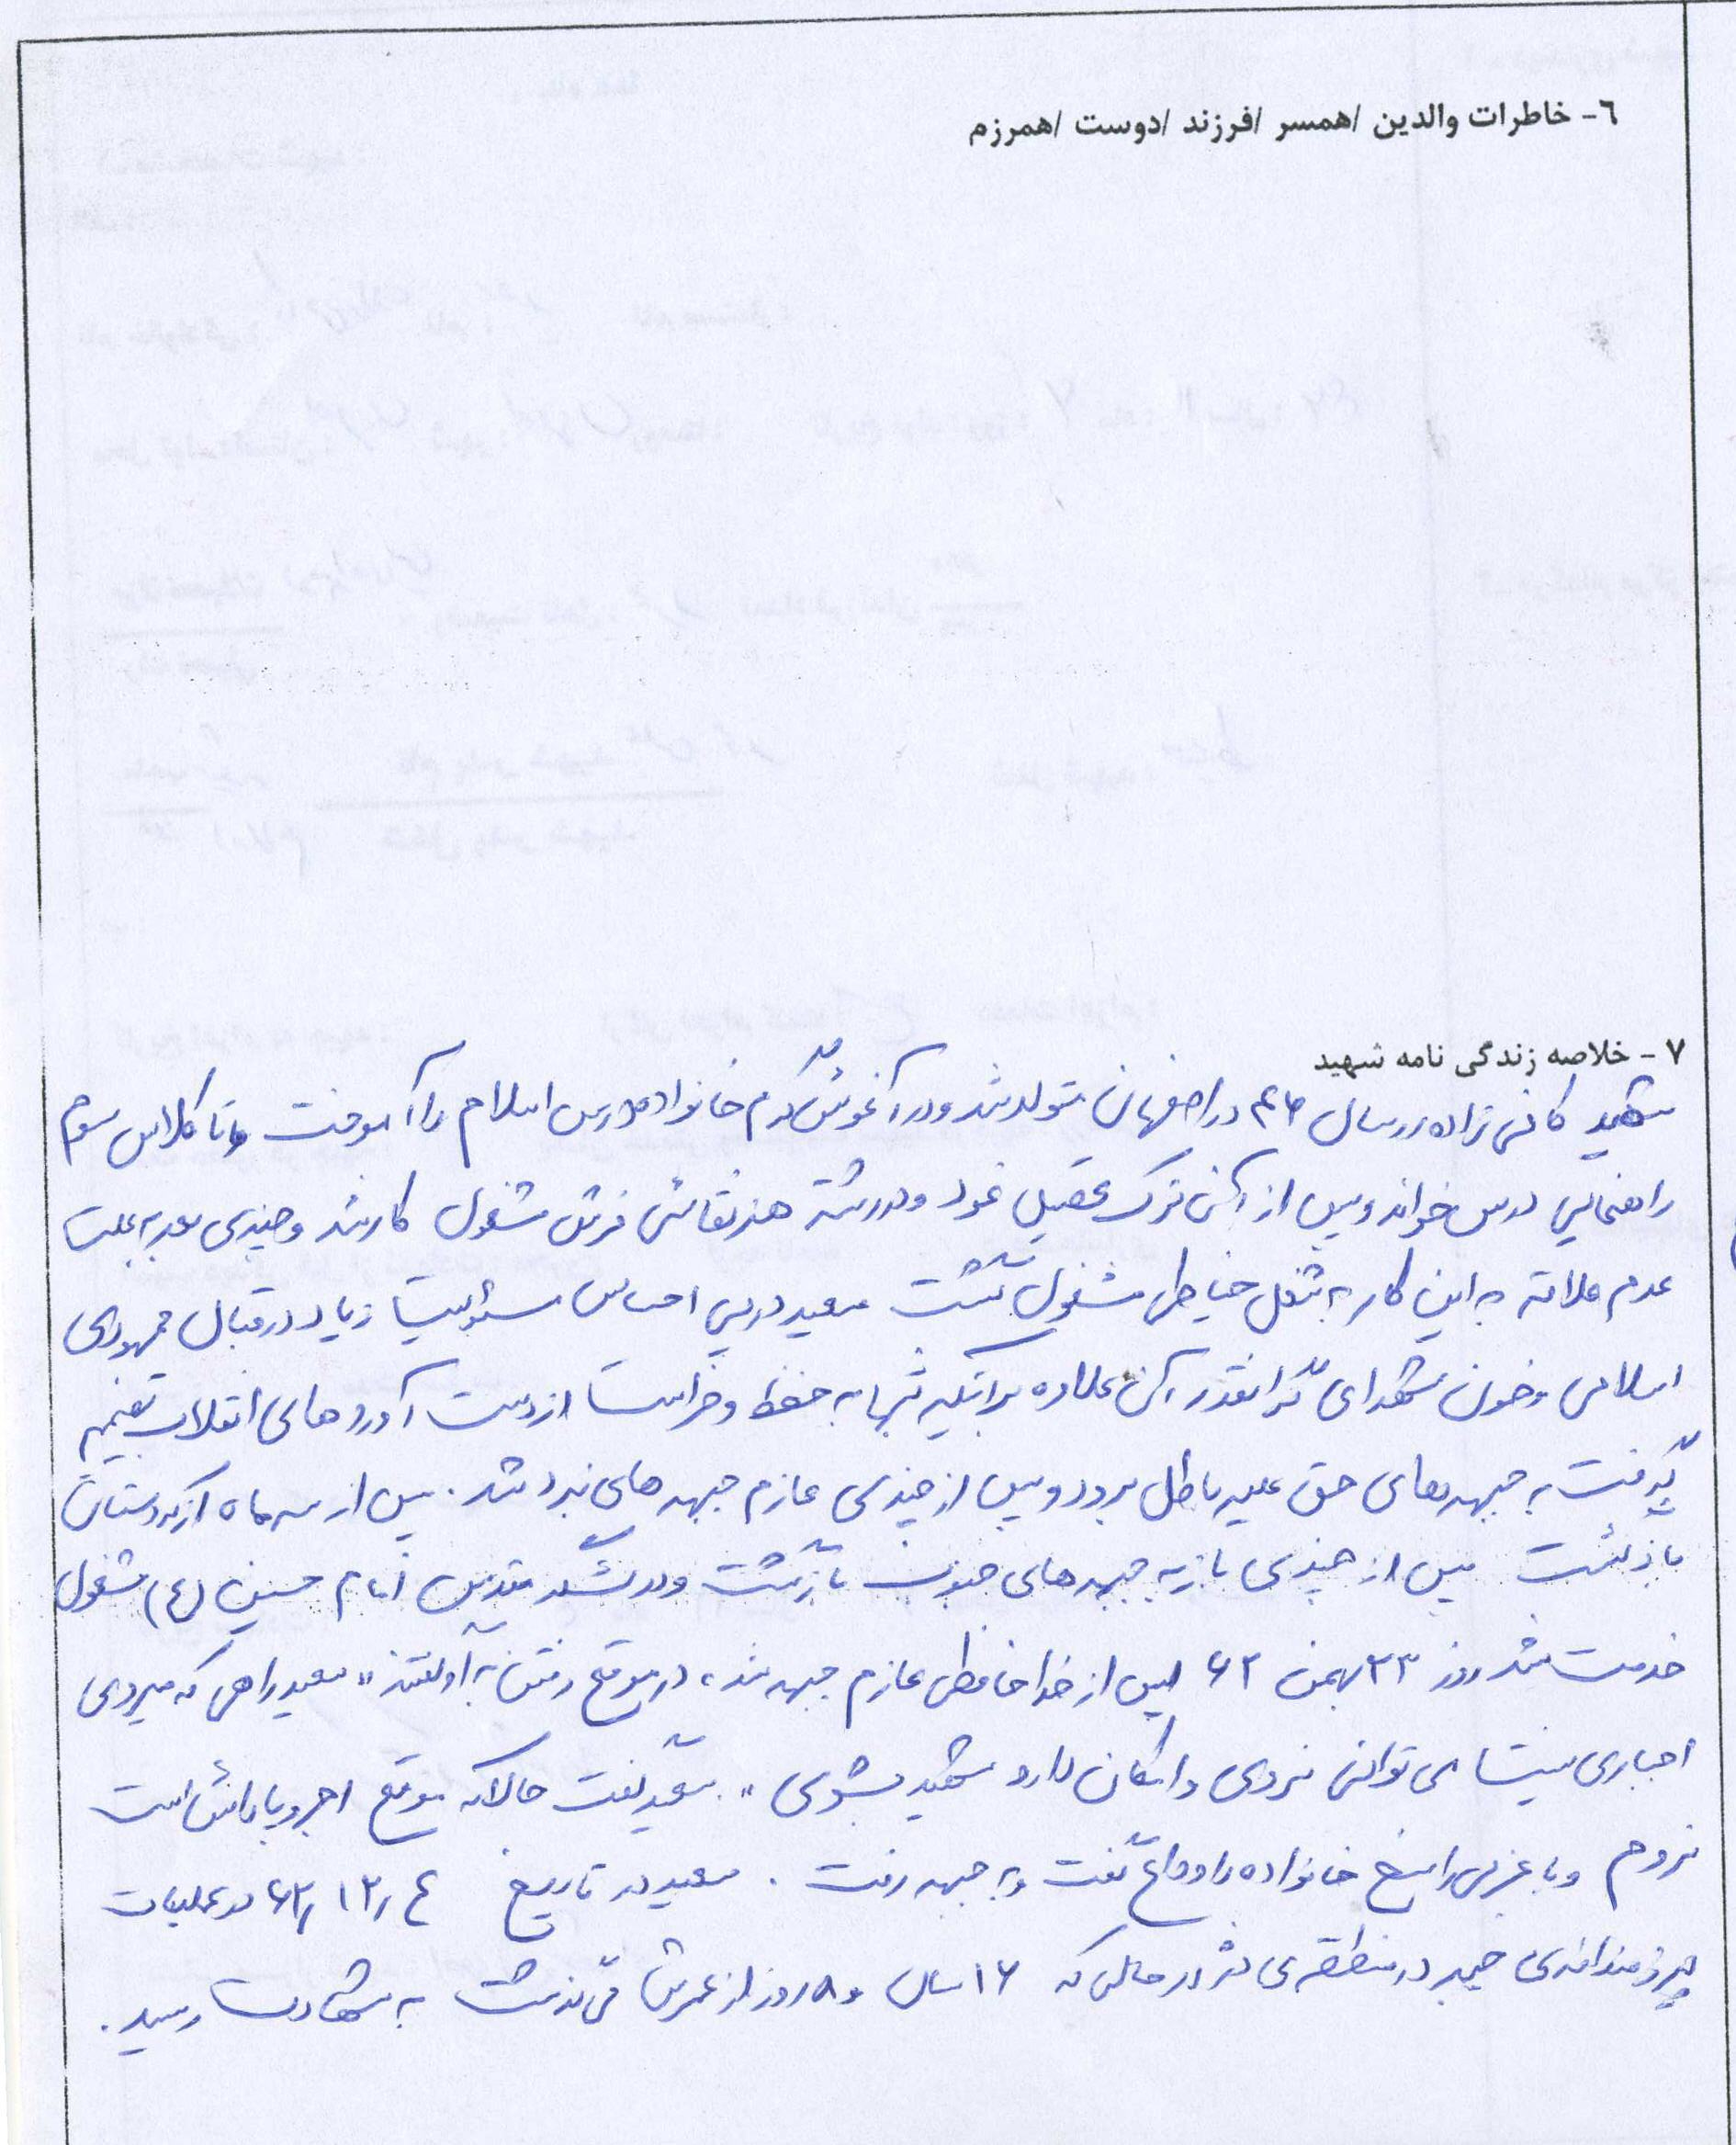 ٦- خاطرات والدین /همسر /فرزند /دوست /همرزم
٧ - خلاصه زندگی نامه شهید
شهید کافی زاده در سال ۴۶ در اصفهان متولد شد و در آغوش گرم خانواده درس اسلام را آموخت و تا کلاس سوم
راهنمایی درس خواند و پس از آن ترک تحصیل نمود و در رشته هنر نقاشی فرش مشغول کار شد و چندی بعد به علت
عدم علاقه به این کار به شغل خیاطی مشغول گشت سعید در پی احساس مسئولیت زیاد در قبال جمهوری
اسلامی و خون شهدای گرانقدر آن علاوه بر اینکه شبها به حفظ و حراست از دست آوردهای انقلاب تصمیم
گرفت به جبهه های حق علیه باطل برود و پس از چندی عازم جبهه های نبرد شد . پس از سه ماه از کردستان
بازگشت پس از چندی باز به جبهه های جنوب بازگشت و در لشگر مقدس امام حسین (ع) مشغول
خدمت شد روز ۲۳ بهمن ۶۲ پس از خداحافظی عازم جبهه شد ، در موقع رفتن به او گفتند " سعید راهی که میروی
اجباری نیست می توانی نروی و امکان دارد شهید بشوی " . سعید گفت حالا که موقع اجر و پاداش است
نروم و با عزمی راسخ خانواده را وداع گفت و به جبهه رفت . سعید در تاریخ ۶۲/۱۲/۴ در عملیات
پیروزمندانه ی خیبر در منطقه ی در حالی که ۱۶ سال و ۸ روز از عمرش می گذشت به شهادت رسید .